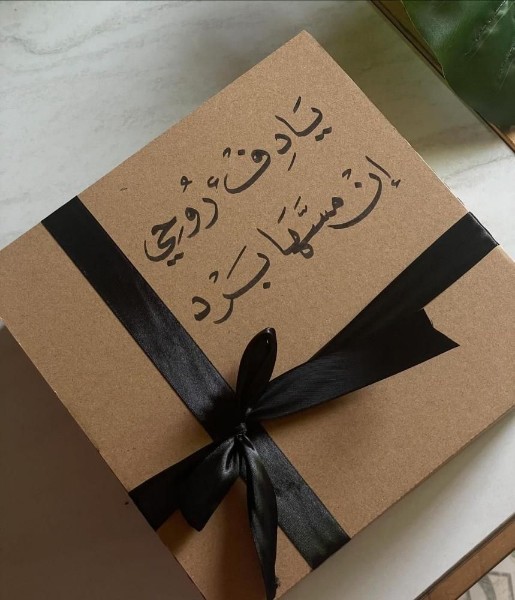 يَا دِفْءُ رُوحِي
إنْ مسَّهَا بَرْد